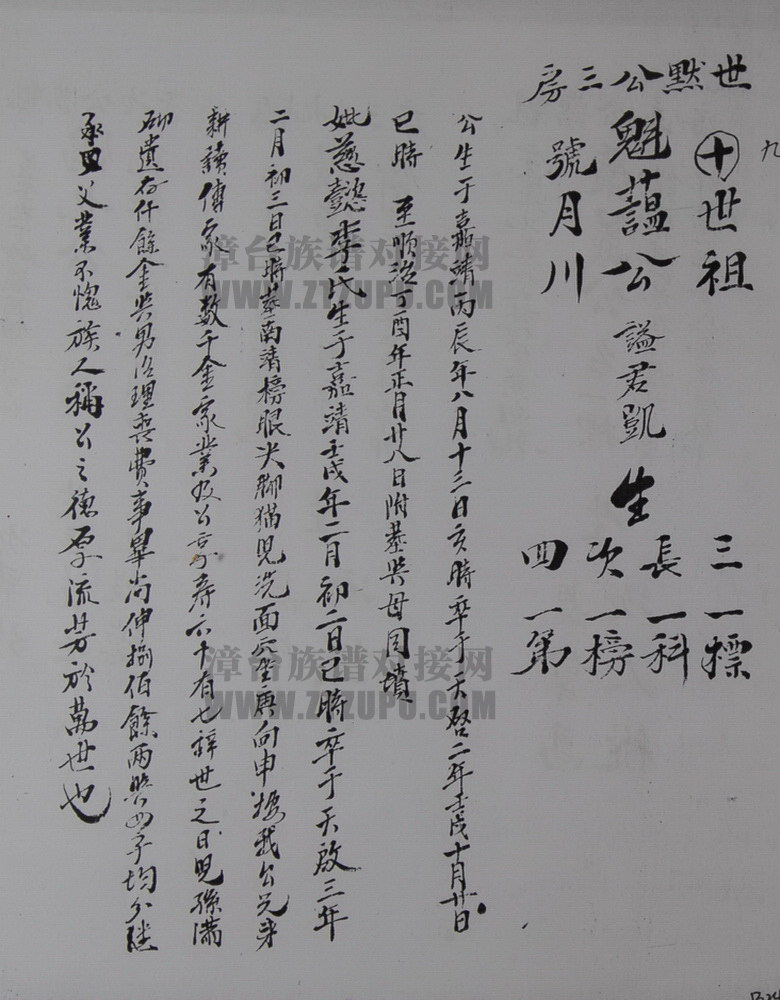 九
世默公三房
十世祖
魁藹公 謚君凱 生
號月川
三一標
長一科
次一榜
四一第
公生于嘉靖丙辰年八月十三日亥時卒于天啓二年壬戌十月廿日
巳時 至順治丁酉年正月廿八日附葬與母同墳
妣慈懿李氏生于嘉靖壬戌年二月初二日巳時卒于天啟三年
二月初三日巳時葬南靖榜眼尖脚猫兒洗面穴坐庚向申揆我公兄弟
耕讀傳家有數千金家業及公享壽六十有七辭世之日兒孫滿
砌遺存仟餘金與男治理喪費事畢尚伸捌佰餘兩與四子均分
承父業不愧族人稱公之德厚流芳於萬世也
漳台族谱对接网
WWW.ZTZUPU.COM
漳台族谱对接网
WWW.ZTZUPU.COM